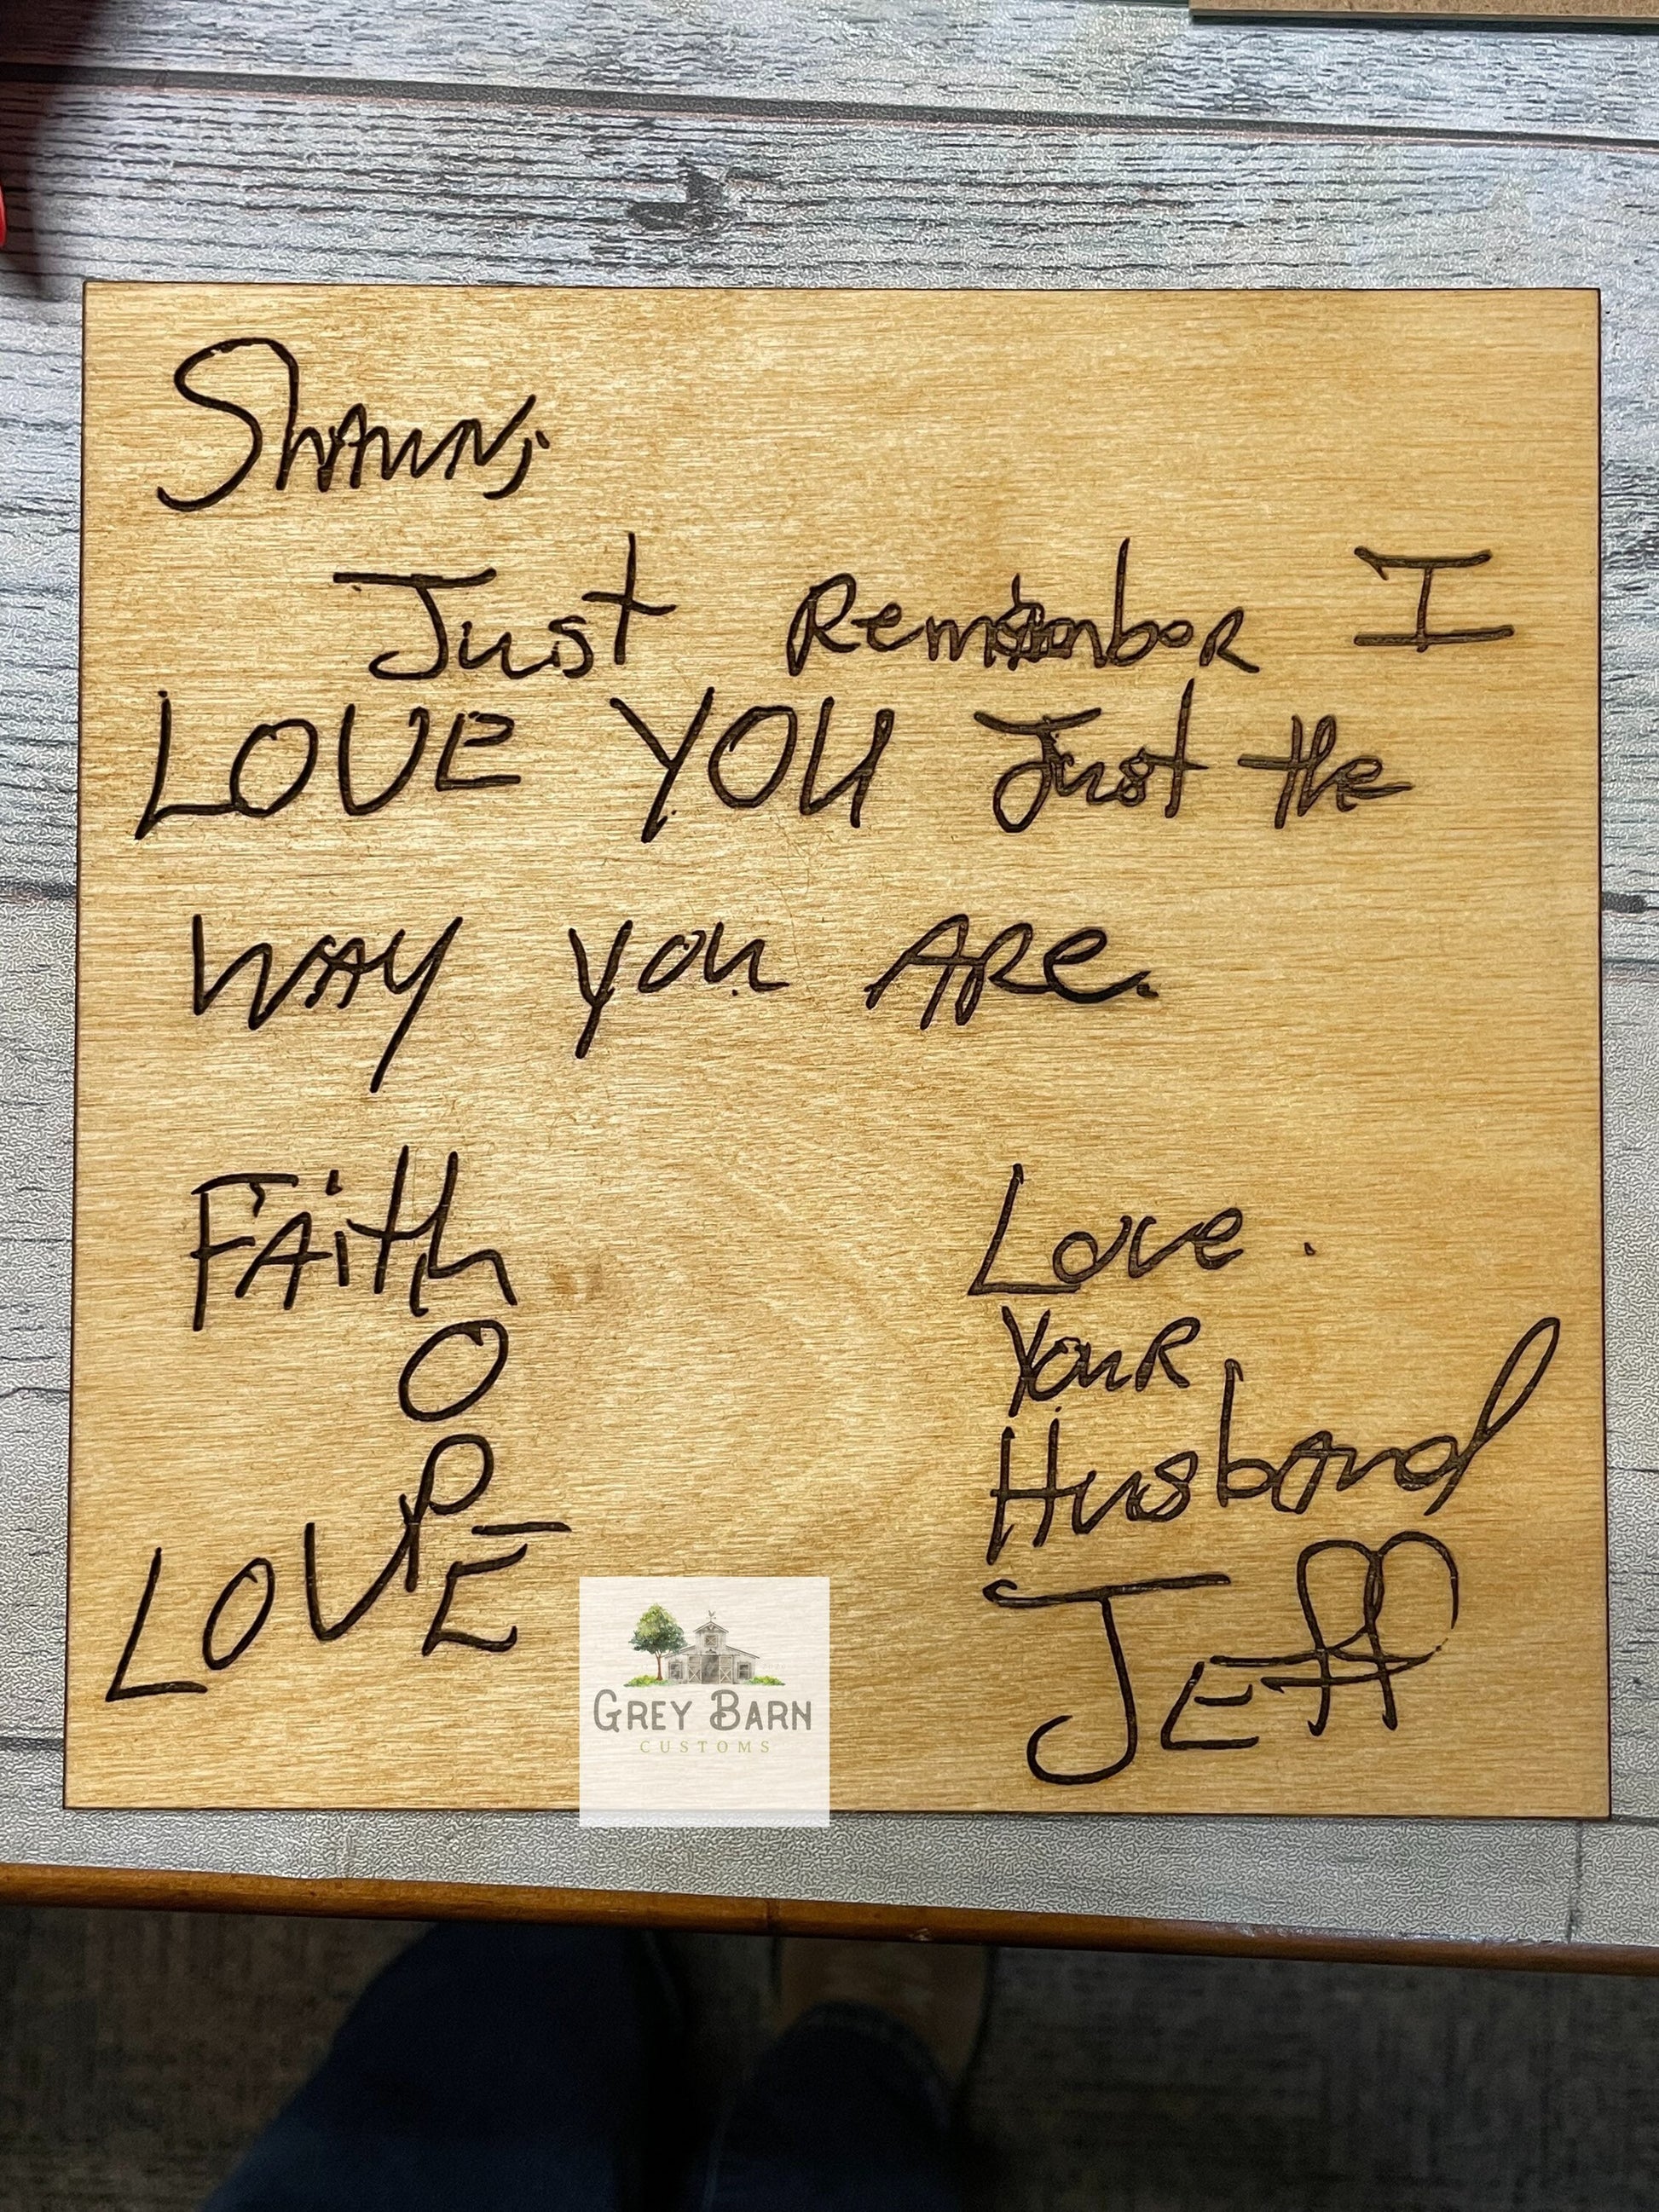 Shawn,
Just Remember I
LOVE YOU Just the
WAY you ARe.
FAith
O
P
LOVE
Love.
YouR
HusbANd
JEff
GREY BARN
CUSTOMS